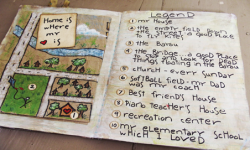 Home is
where
my
is
LEGEND
1 my House
2 the empty field by
the street a good place
to fly kites
3 the Bayou
4 the Bridge a good place
to look for dead
things floating in the bayou
5 church - every Sunday
6 Softball field my DAD
was my coach
7 Best friend's House
8 Piano Teacher's House
9 recreation center
10 my elementary school
which I LOVED